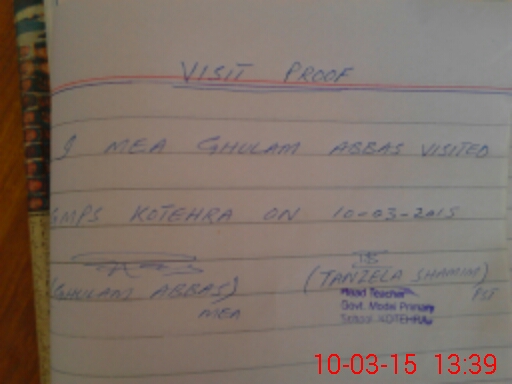 VISIT PROOF
I MEA GHULAM ABBAS VISITED
GMPS KOTEHRA ON 10-03-2015
(GHULAM ABBAS) (TANZELA SHAMIM)
MEA PST
Head Teacher
Govt. Model Primary
School KOTEHRA
10-03-15 13:39